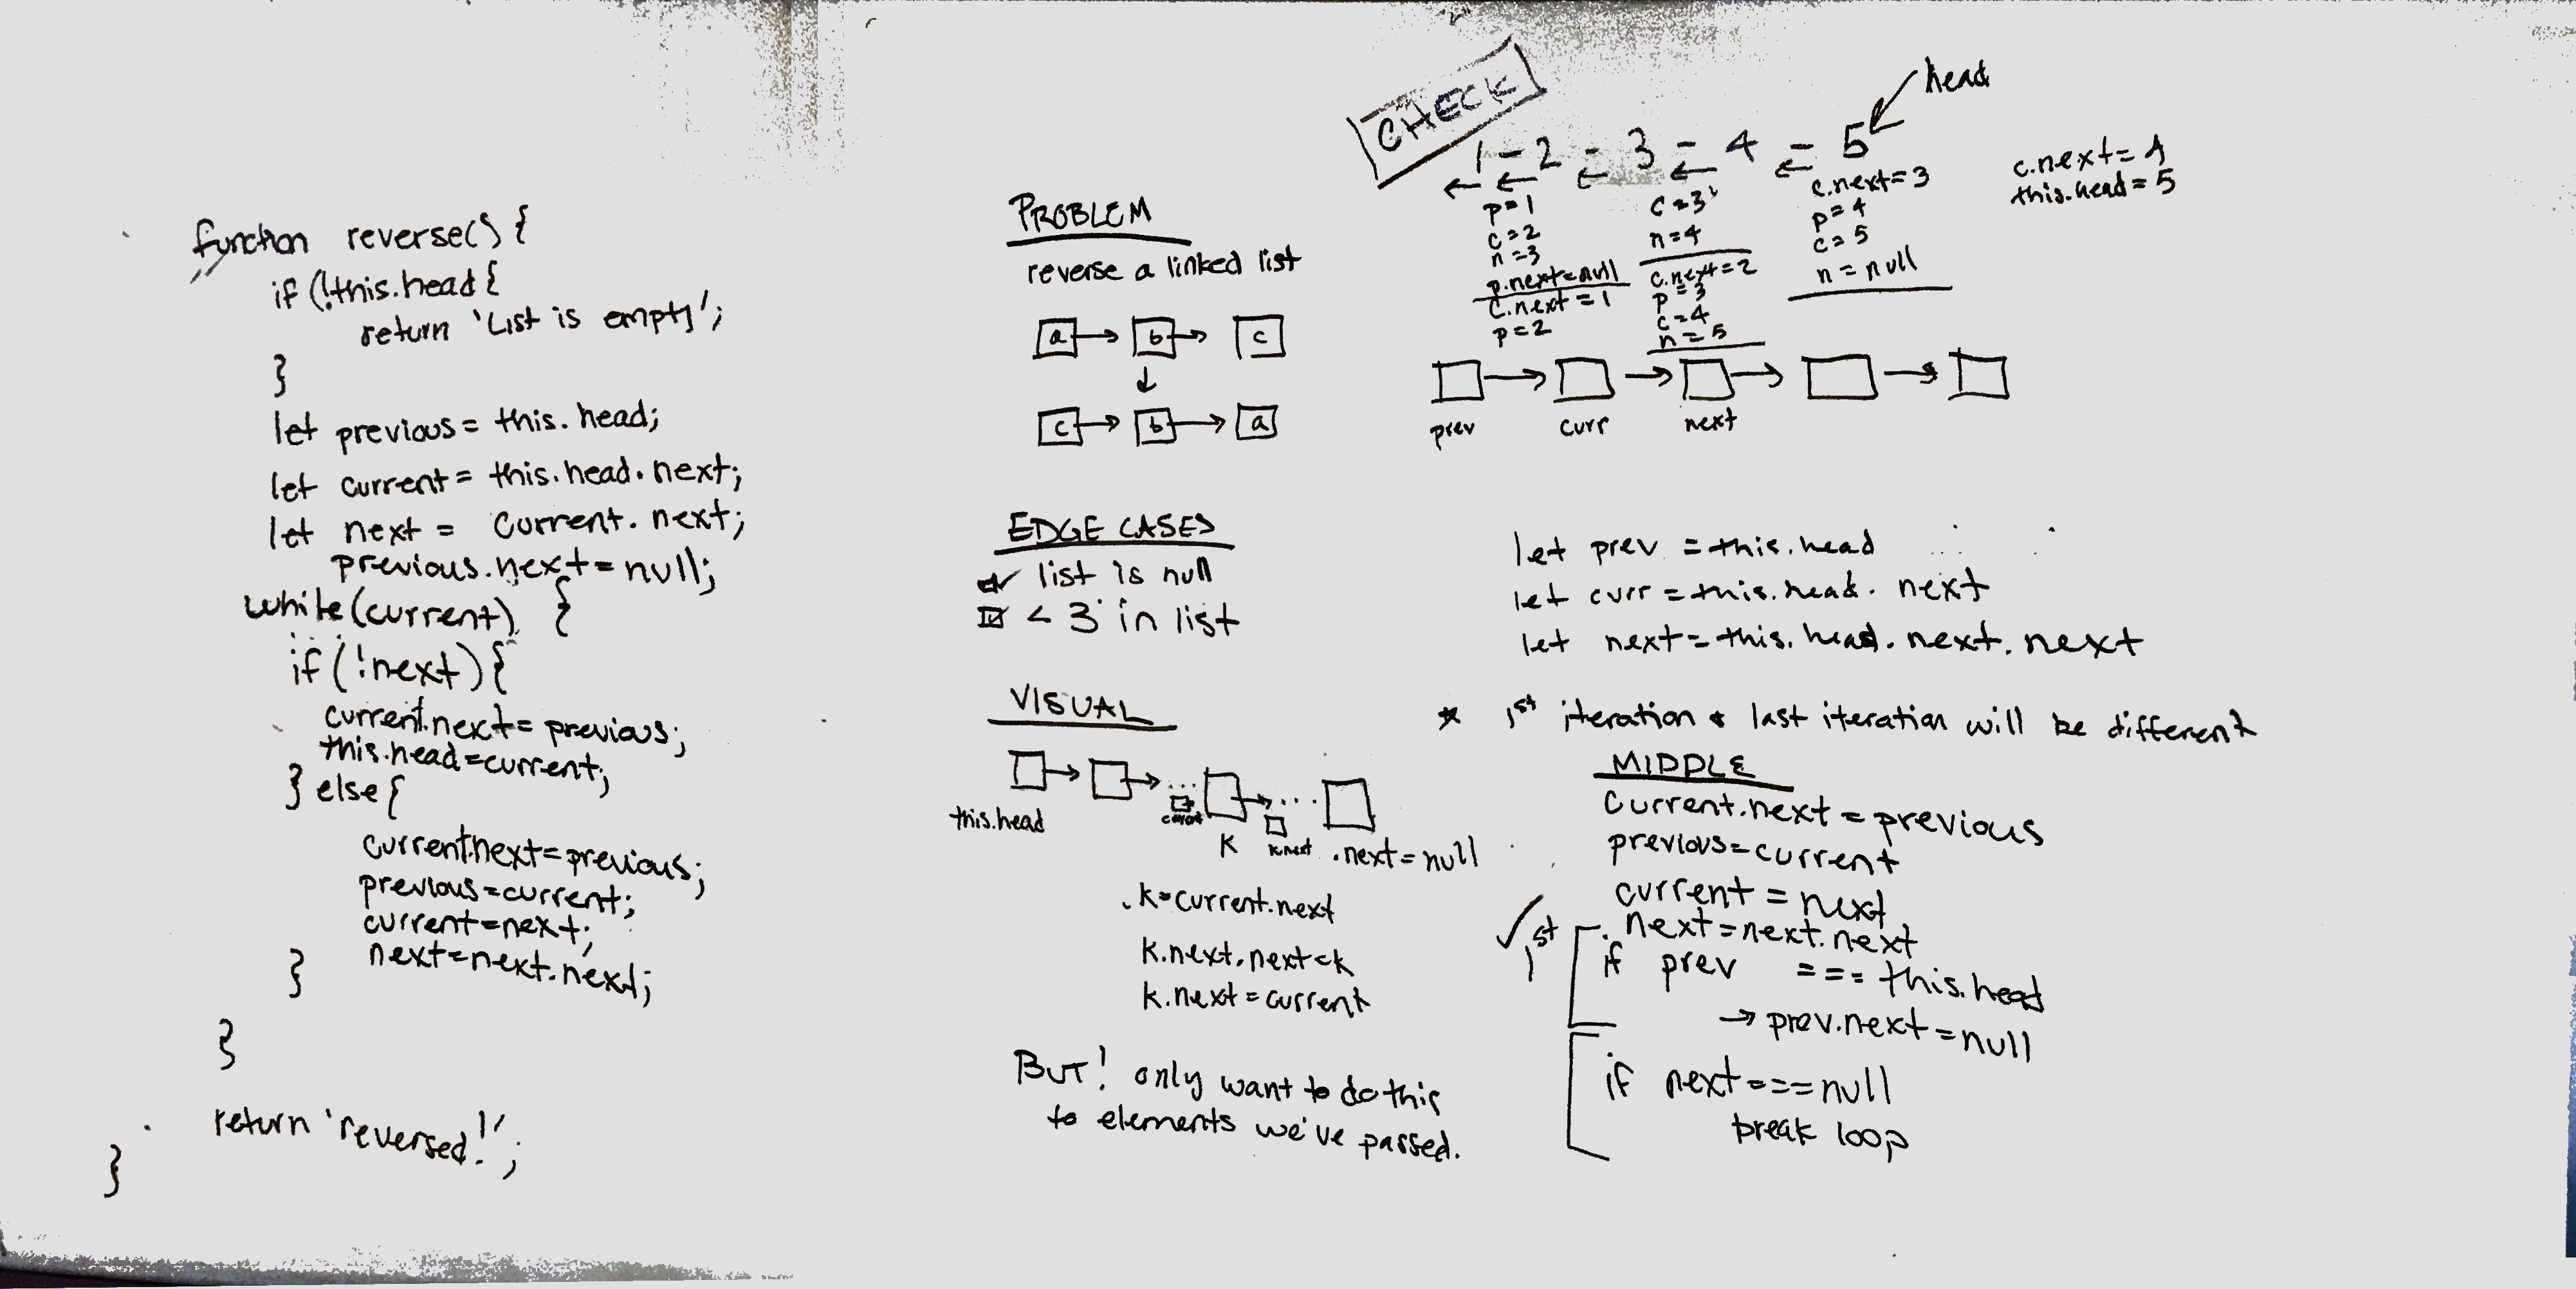 function reverse() {
if (!this.head {
return 'List is empty';
}
let previous = this.head;
let current = this.head.next;
let next = current.next;
previous.next = null;
while (current) {
if (!next) {
current.next = previous;
this.head = current;
} else {
current.next = previous;
previous = current;
current = next;
next = next.next;
}
}
return 'reversed!';
}
PROBLEM
reverse a linked list
a b c
c b a
EDGE CASES
list is null
< 3 in list
VISUAL
this.head
current
K
k.next
.next = null
. k = current.next
k.next.next = k
k.next = current
BUT! only want to do this
to elements we've passed.
CHECK
head
1 - 2 - 3 - 4 - 5
p = 1
c = 2
n = 3
p.next = null
c.next = 1
p = 2
c = 3
n = 4
c.next = 2
p = 3
c = 4
n = 5
c.next = 3
p = 4
c = 5
n = null
c.next = 4
this.head = 5
prev curr next
let prev = this.head
let curr = this.head.next
let next = this.head.next.next
* 1st iteration & last iteration will be different
MIDDLE
current.next = previous
previous = current
current = next
next = next.next
1st
if prev === this.head
→ prev.next = null
if next === null
break loop